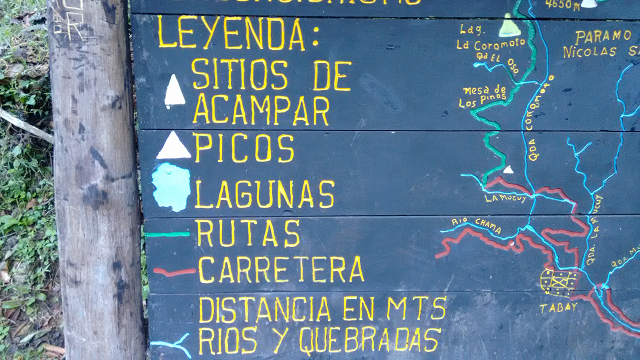 LEYENDA:
SITIOS DE
ACAMPAR
PICOS
LAGUNAS
RUTAS
CARRETERA
DISTANCIA EN MTS
RIOS Y QUEBRADAS
4650m
Lag.
La Coromoto
Qda EL Oso
Mesa de
Los Pinos
QDA COROMOTO
PARAMO
NICOLAS
LA MUCUY
RIO CHAMA
QDA. MUCUY
TABAY